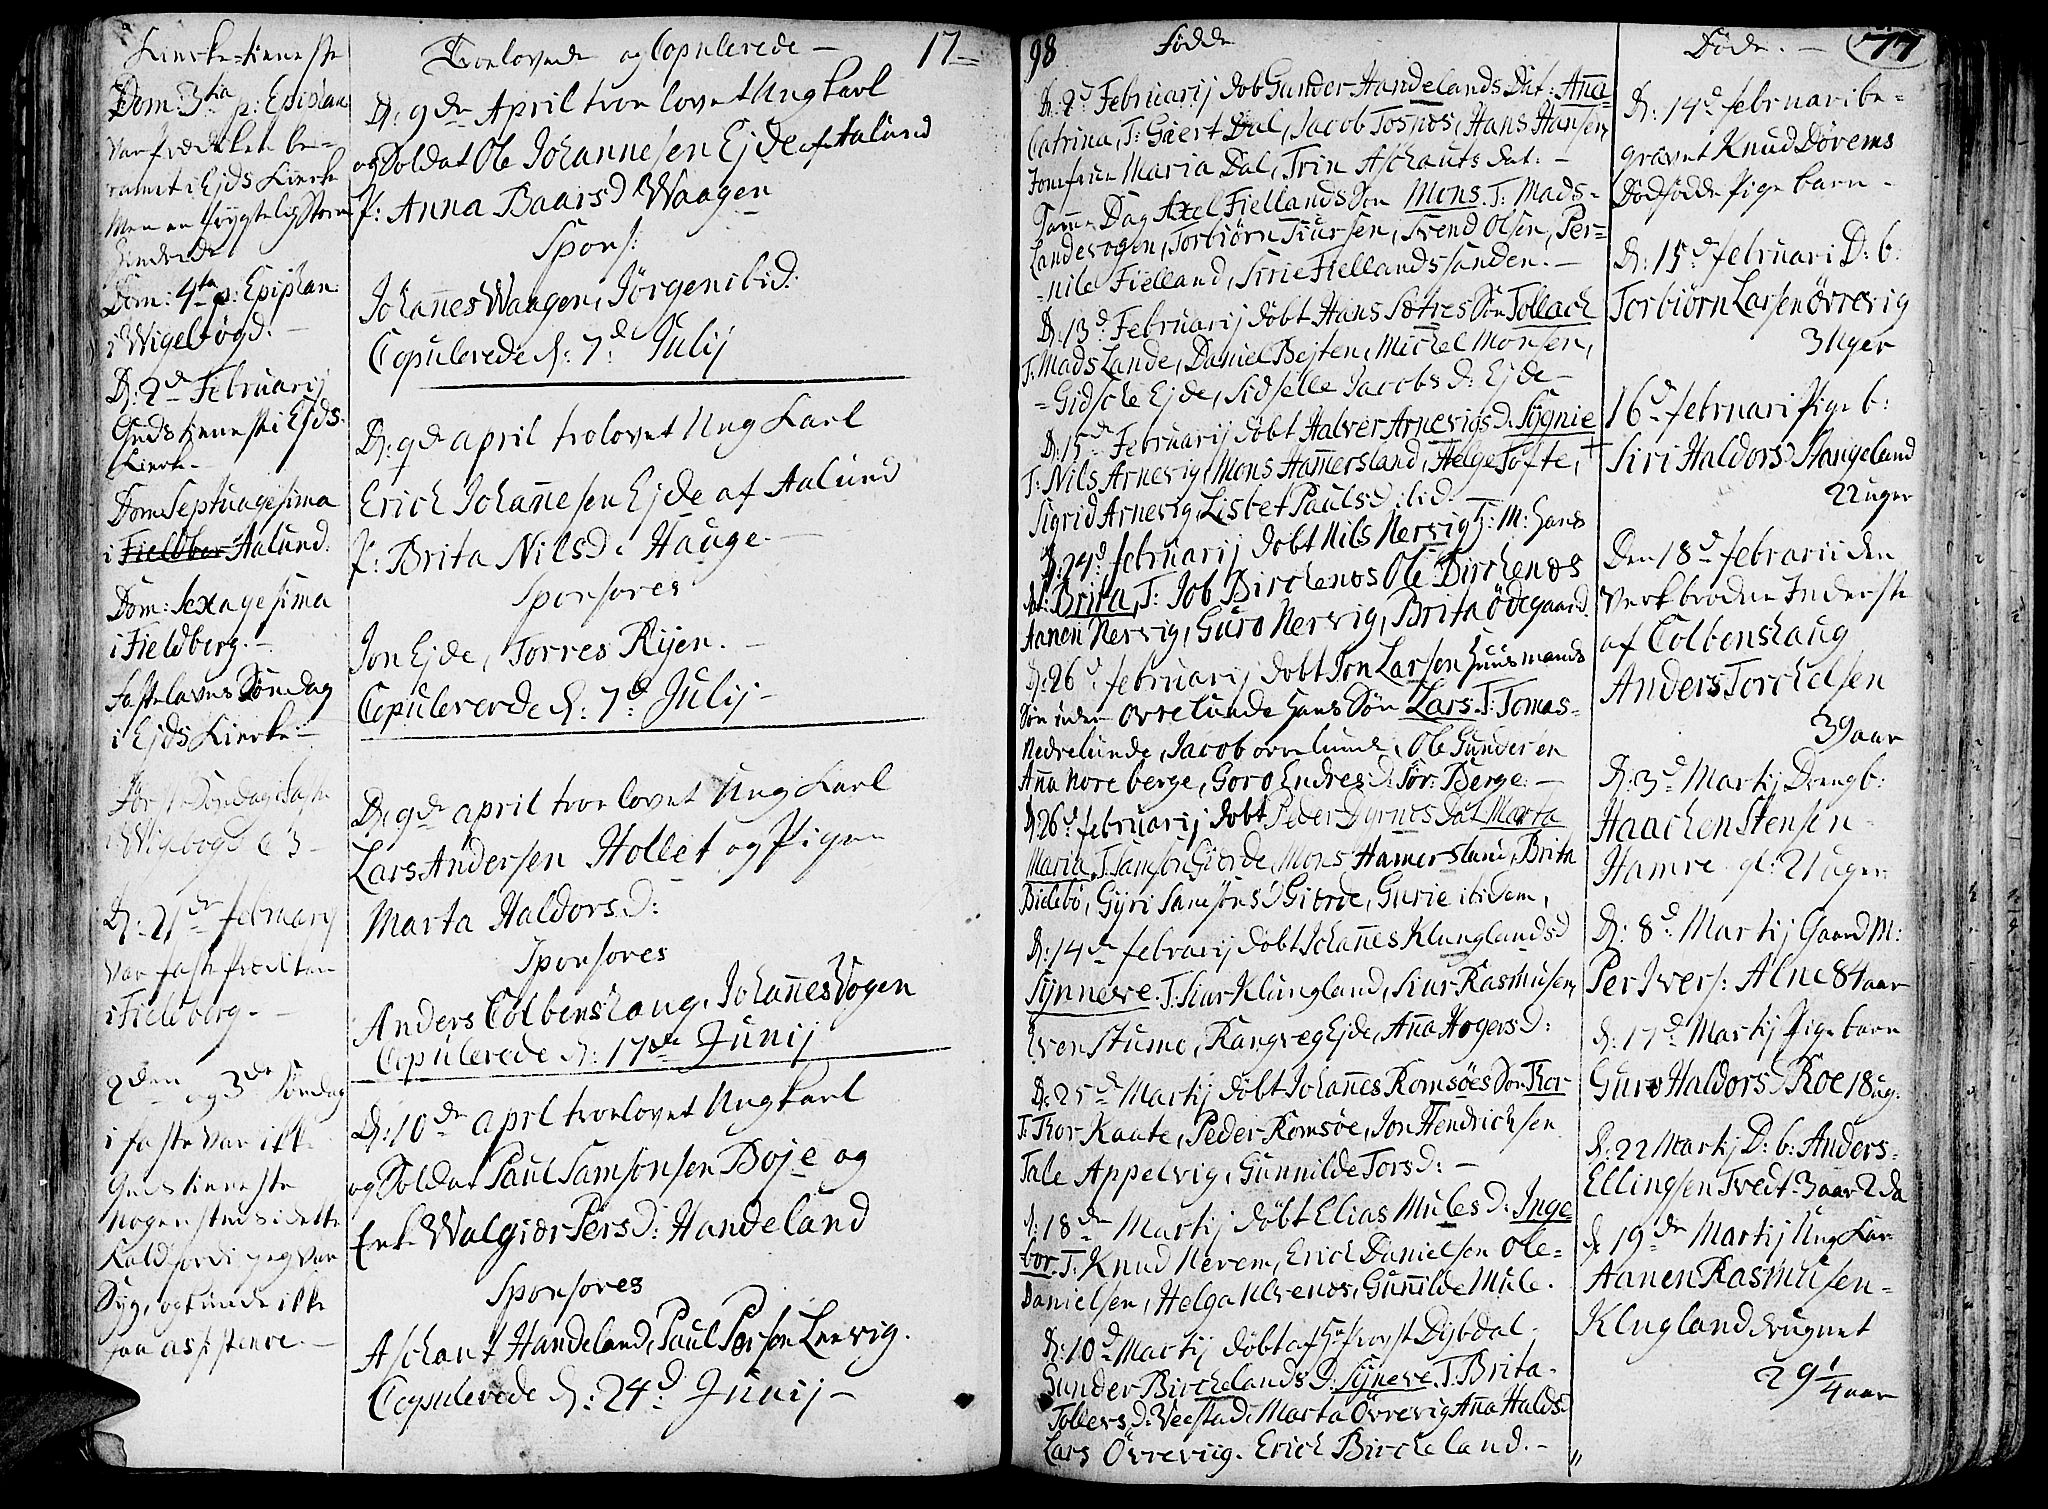 Kierke-tieneste
Dom: 3tia p: Epiphan
var Prædiken be-
ramt i Ejds Kierke
Men en frygtelig Storm
hindrede
Dom: 4ta p: Epiphan:
i Wigebøgd. -
D: 2d Februarij
Guds tieneste i Ejds-
Kierke -
Dom: Septuagesima
i Fieldber Aalund.
Dom: Sexagesima
i Fieldberg. -
Faste lavns Søndag
i Ejds Kierke -
Første Søndag i Faste
i Wigebøgd
D: 21de Februarij
var faste Prædiken
i Fieldberg. -
2den og 3de Søndag
i faste var ikke
Guds tieneste
Nogensteds i dette
Kald fordi jeg var
Syg, og kunde ikke
faa assistence. -
Troelovede og Copulerede - 17-
D: 9de April troelovet Ung karl
og Soldat Ole Johannesen Ejde af Aalund
P: Anna Baars D Waagen
Spons:
Johannes Waagen, Jørgen ibid:
Copulerede d: 7de Julij
D: 9de April trolovet Ung Karl
Erich Johannesen Ejde af Aalund
P: Brita Nils D: Hauge. -
Sponsores
Jon Ejde, Torres Rijen. -
Copulerede d: 7d Julij -
D: 9de april troelovet Ung Karl
Lars Andersen Hollet og Pigen
Marta Haldors D:
Sponsores
Anders Colbenshaug, Johannes Vogen
Copulerede d: 17de Junij
D: 10de aprl troelovet Ung karl
og Soldat Paul Samsonsen Boje og
Enke Walgier Pers D: Handeland
Sponsores
Aschaut Handeland, Paul Persøn Leervig.
Copulerede d: 24d Junij -
98 Fødde
D: 2d Februarij døb Gunder Handelands Dat: Anna
Catrina, T: Gaert Dal, Jacob Tosnøs, Hans Hansen,
Jomfruen Maria Dal, Trin Aschauts dat: -
Samme Dag Axel Fiellands Søn Mons. T: Mads-
Landevogen, Torbiørn Siursen, Svend Olsen, Per-
-nile Fielland, Sirie Fiellandssanden. -
D: 13d Februarij døbt Hans Sætres Søn Tollach
T: Mads Lande, Daniel Bejten, Michel Monsen,
-Gidsche Ejde, Sidselle Jacobs D: Ejde -
D: 15de Februarij døbt Halver Arnevigs D. Sygnie
T: Nils Arnevig, Mons Hamersland, Helge Tofte,
Sigrid Arnevig, Lisbet Pauls D: ibid.
D: 24d februarij døbt Nils Nervig T: M: hans
dat: Brita, T: Job Birchenøs Ole Birchenøs
Aanen Nervig, Guro Nervig, Brita Ødegaard
D: 26d februarij døbt Jon Larsen huusmands
Søn under Øvrelunde hans Søn Lars. T: Tomas-
Nedrelunde, Jacob øvrelunde, Ole Gundersen
Anna Noreberge, Goro Endres D: Sør: Berge. -
D: 26d februarij døbt Peder Dyrnes Dat Marta
Maria, T: Samson Gierde, Mons Hamersland, Brita
Bielebø, Gyri Samsøns D Gierde, Gurie ibidem,
D: 14de februarij døbt Johannes Klunglands D
Synneve. T: Siur Klungland, Siur Rasmusen,
Even Stumo, Rangveg Ejde, Anna Hogers D:
D: 25d Martij døbt Johannes Romsøes Søn Thor
T: Thor Kaate, Peder Romsøe, Jon Hendrichsen
Tale Appelvig, Gunnilde Tors D: -
d: 18de Martij døbt Elias Mules D: Inge
bor. T: Knud Nerem, Erich Danielsen Ole-
Danielsen, Helga Ulvenøs, Gunnilde Mule.
D: 10d Martij døbt af Hr Provst Dybdal.
Gunder Birchelands D: Synneve. T: Brita-
Tollers D: Veestad, Marta Øvrevig Anna Halds D
Lars Øvreviig. Erich Bircheland. -
Døde. - 77
D: 14d februari be-
gravet Knud Dørems
Dødfødde Pige barn -
D: 15d februari D: b:
Torbiørn Larsen Øvrevig
3 Uger
16d februari Pige b:
Siri Haldors D Stangeland
22 uger
Den 18d februarii den
Verkbrødne Inderste
af Colbenshaug
Anders Torchelsen
39 aar
D: 3d Martij Drengb:
Haachen Stensen-
Hamre. gl: 21 uger.
D: 8d Martij Gaard M:
Per Ivers: Alne 84 aar
d: 17d Martij Pige barn
Guro Haldors D Roe 18 ug.
d: 22 Martij D: b: Anders-
Ellingsen Tvedt. 3 aar 2 da
d 19de Martij Ung Kar
Aanen Rasmusen-
Klugland drugnet
29 1/4 aar